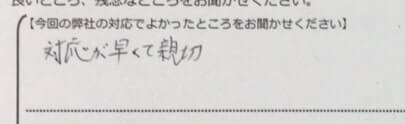 良いところ、残念なところをお聞かせください。
【今回の弊社の対応でよかったところをお聞かせください】
対応が早くて親切